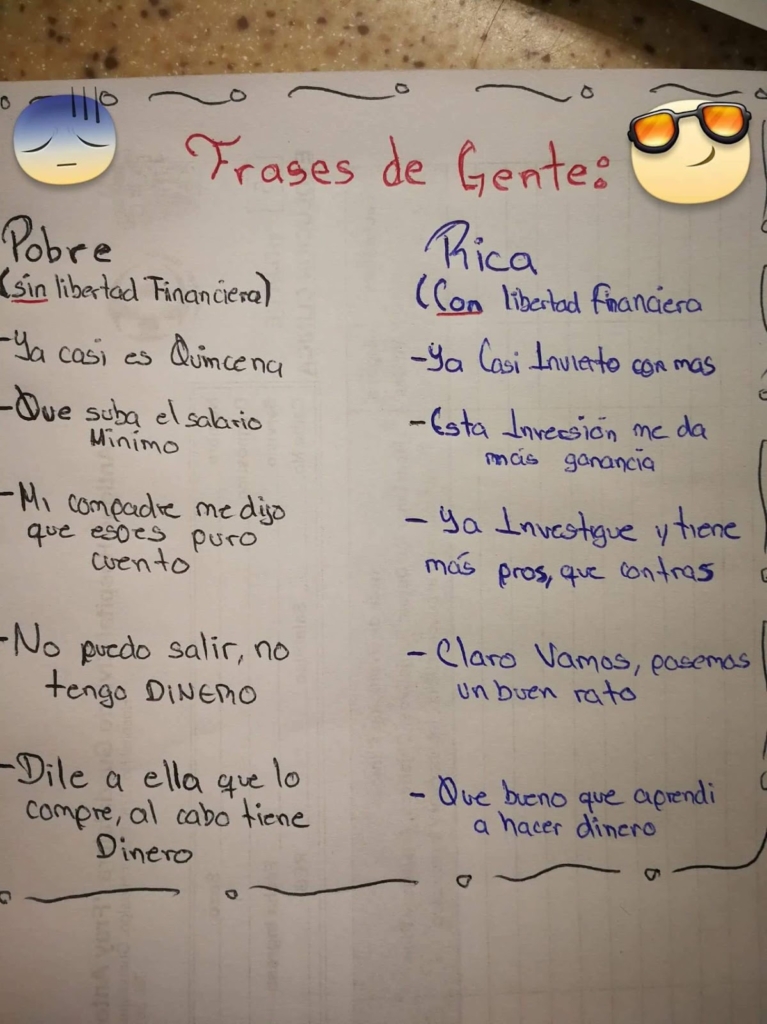 Frases de Gente:
Pobre
(sin libertad Financiera)
-Ya casi es Quincena
-Que suba el salario
Minimo
-Mi compadre me dijo
que eso es puro
cuento
-No puedo salir, no
tengo DINERO
-Dile a ella que lo
compre, al cabo tiene
Dinero
Rica
(Con libertad financiera
-Ya Casi Invierto con mas
-Esta Inversión me da
más ganancia
-Ya Investigue y tiene
más pros, que contras
-Claro Vamos, pasemos
un buen rato
-Que bueno que aprendi
a hacer dinero